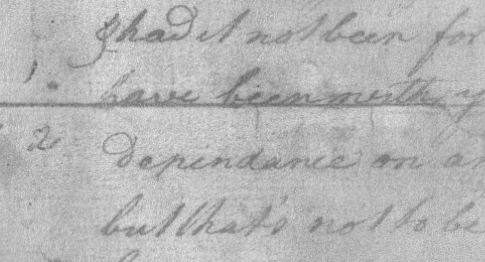 & had it not been for
1. have been worth y
2 dependance on an
but that's not to be